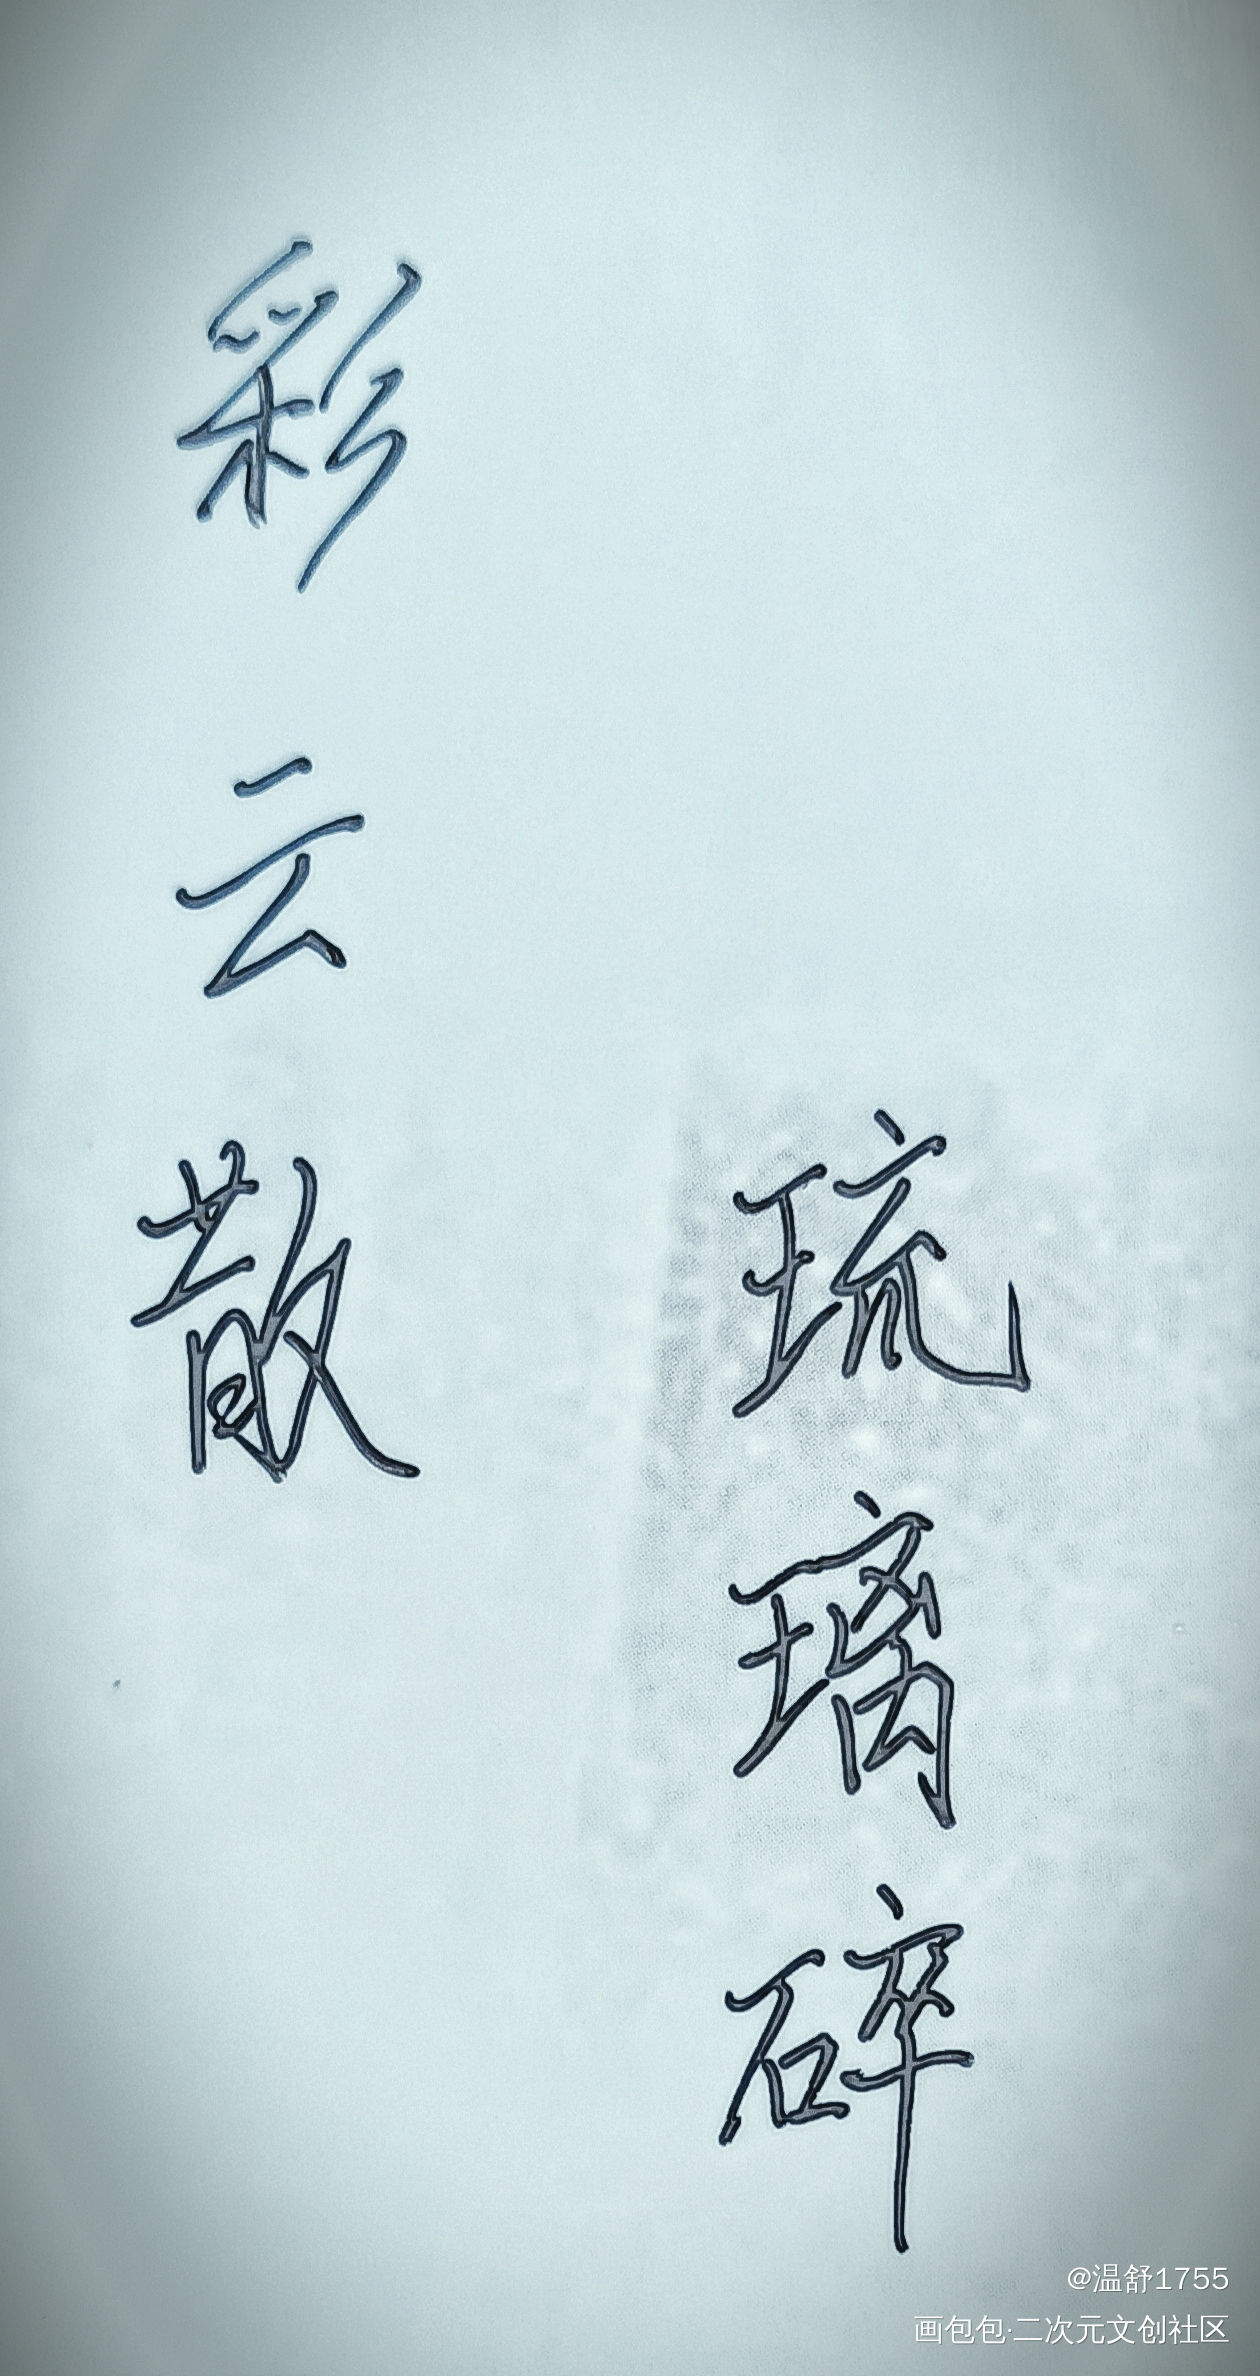 彩云散
琉璃碎
@温舒1755
画包包·二次元文创社区